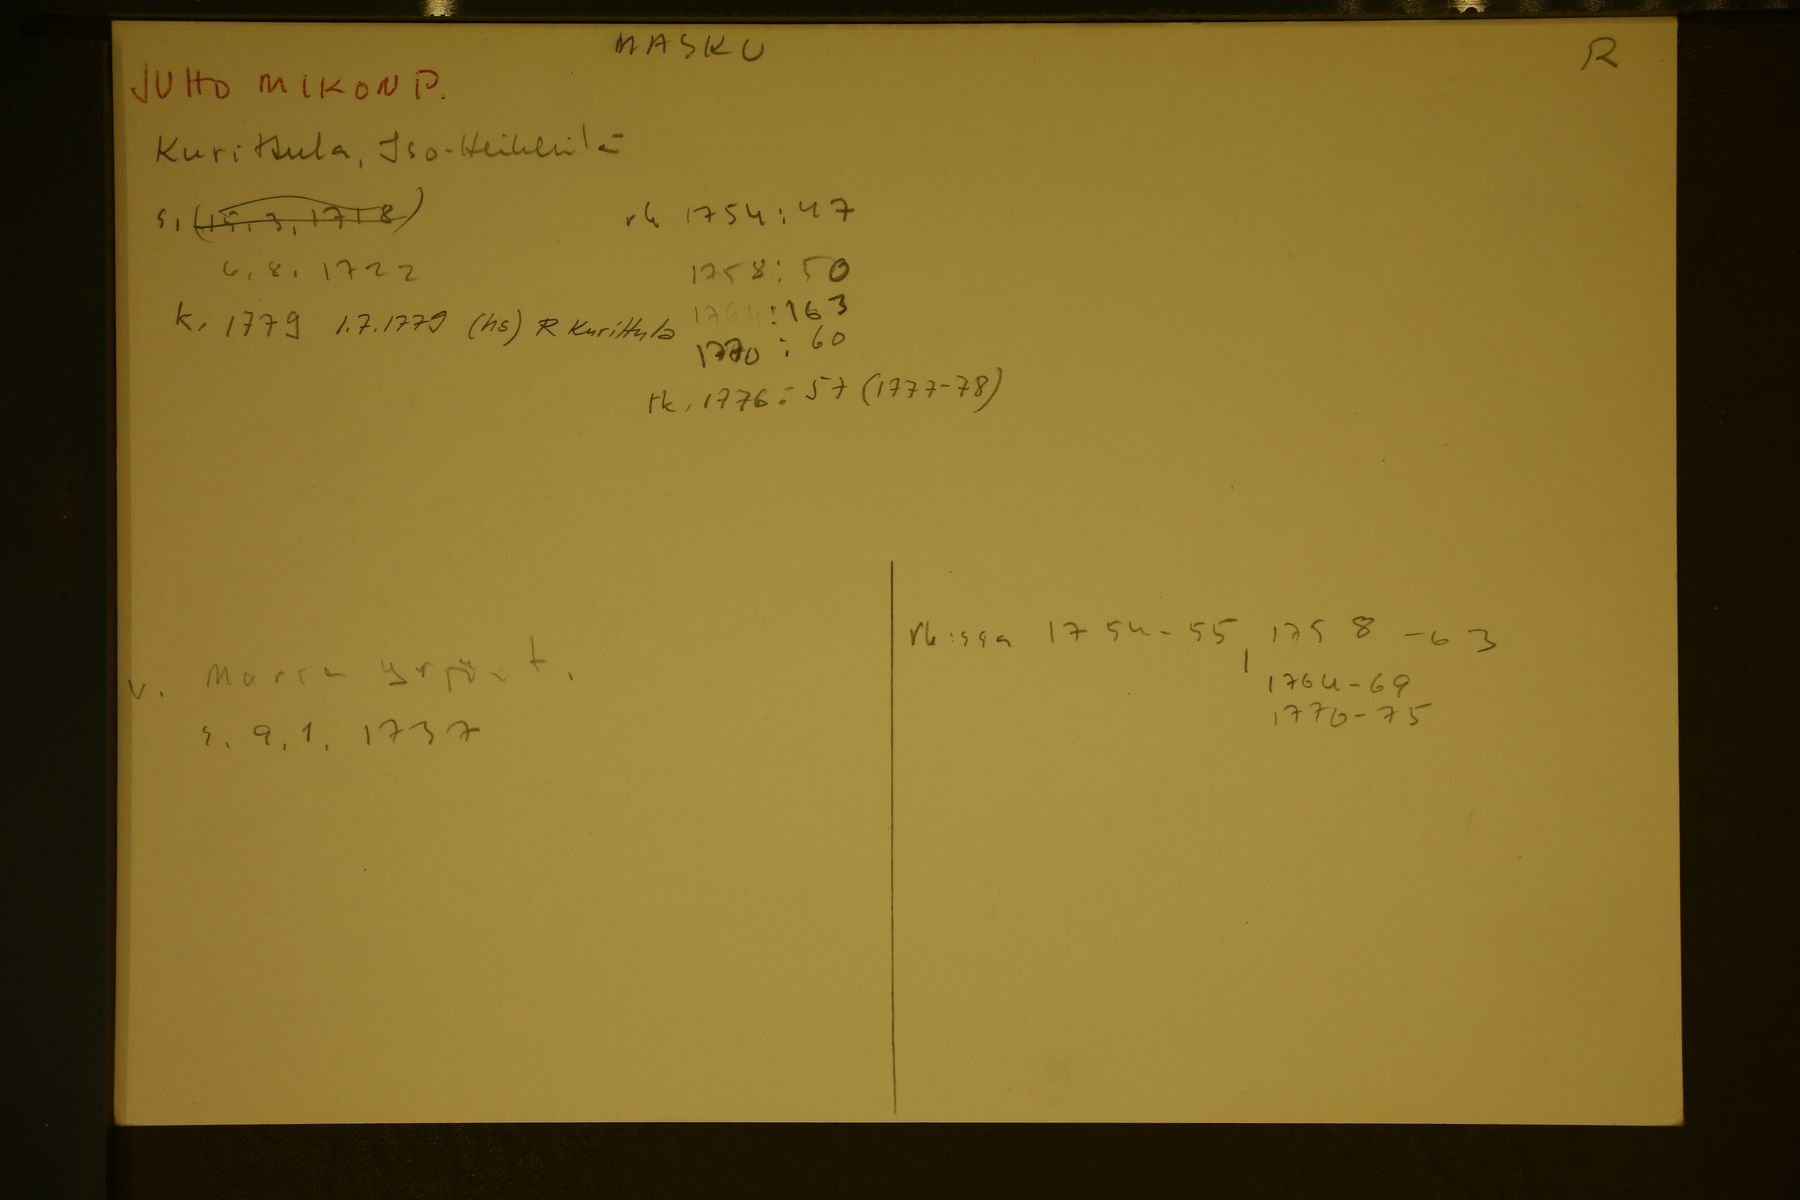 MASKU
R
JUHO MIKONP.
Kurittula, Iso-Heikkilä
s, (15.3.1718)
6.8.1722
k. 1779 1.7.1779 (hs) R Kurittula
rk 1754:47
1758:50
1764:163
1770:60
rk. 1776:57 (1777-78)
v. Maria Yrjönt.
s. 9.1.1737
rk:ssa 1754-55, 1758-63
1764-69
1770-75